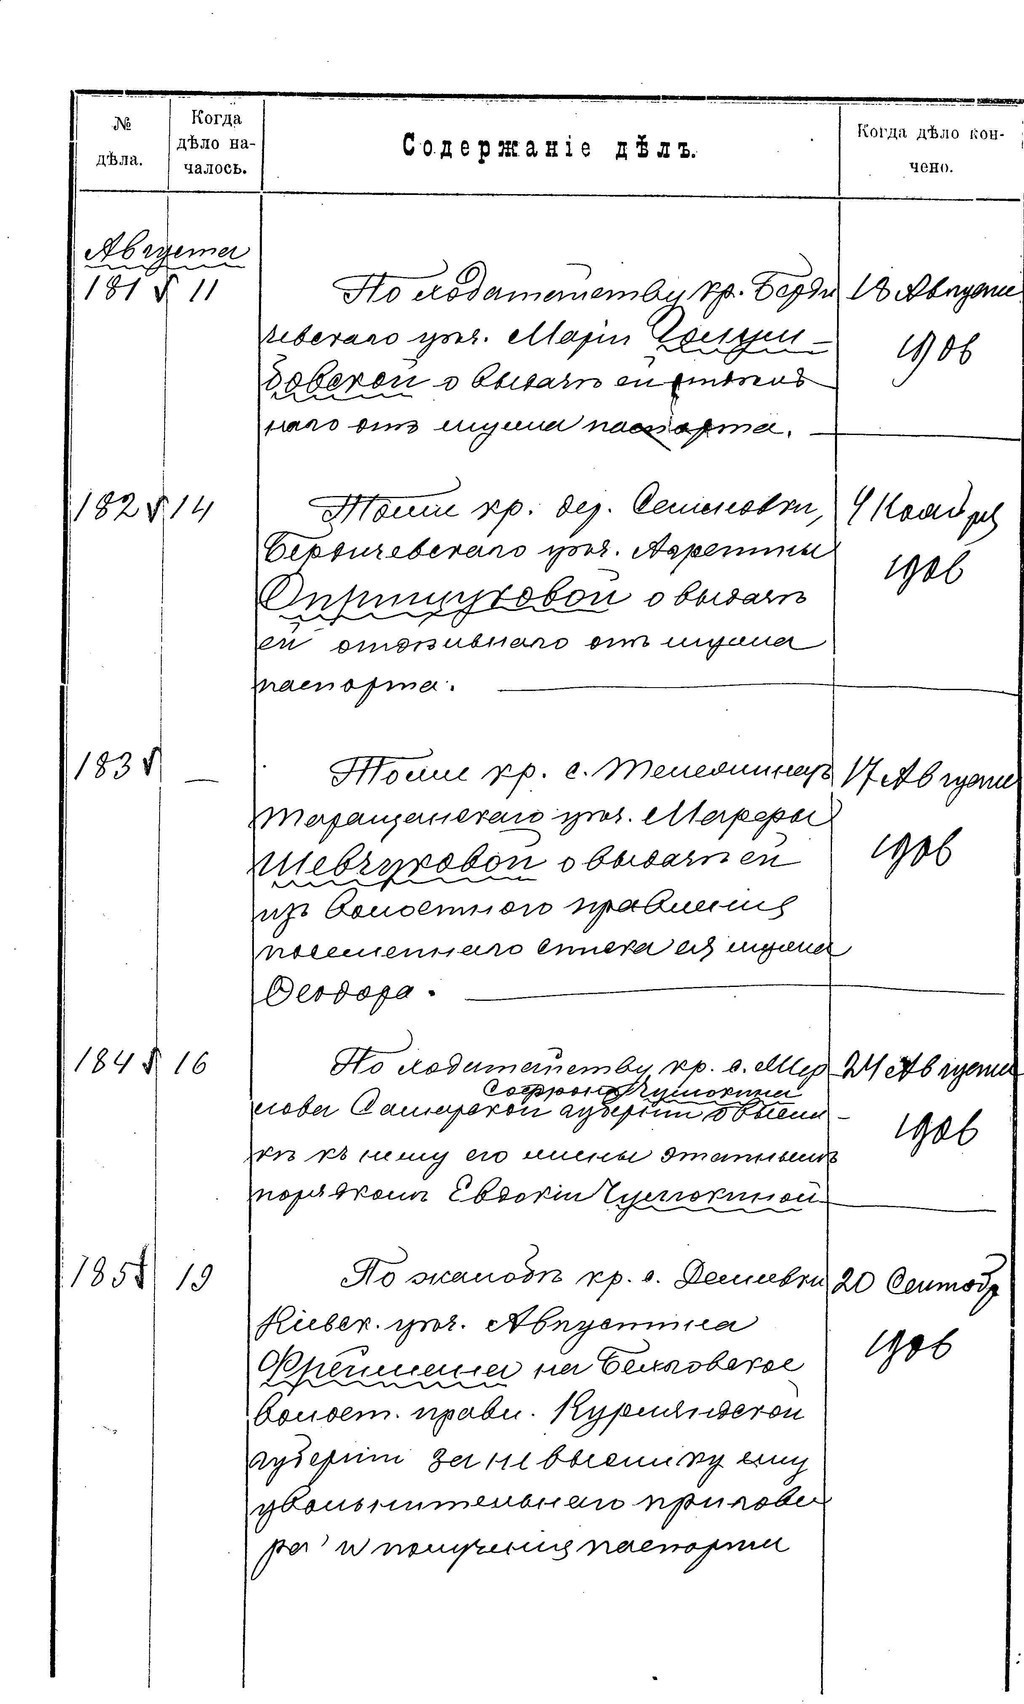 № дѣла.
Когда дѣло началось.
Содержаніе дѣлъ.
Когда дѣло кончено.
Августа
181 11 По ходатайству кр. Берди 18 Августа
чевскаго уѣз. Маріи 1906
бовской о выдачѣ ей отдѣль
наго отъ мужа паспорта.
182 14 Тоже кр. дер. Семеновки, 4 Ноября
Бердичевскаго уѣз. Агрепины 1906
Оприщуковой о выдачѣ
ей отдѣльнаго отъ мужа
паспорта.
183 — Тоже кр. с. 17 Августа
Таращанскаго уѣз. Марфы 1906
Шевчуковой о выдачѣ ей
изъ волостного правленія
посемейнаго списка ея мужа
Ѳеодора.
184 16 По ходатайству кр. с. 24 Августа
Софрона Чумокина
Самарской губерніи о высыл- 1906
кѣ къ нему его жены этапнымъ
порядкомъ Евдокіи Чумокиной
185 19 По жалобѣ кр. с. Демиевки 20 Сентябр
Кіевск. уѣз. Августина
Фреймана на 1906
волост. правл. Курляндской
губерніи за невысылку ему
увольнительнаго приговo
ра и полученія паспорта